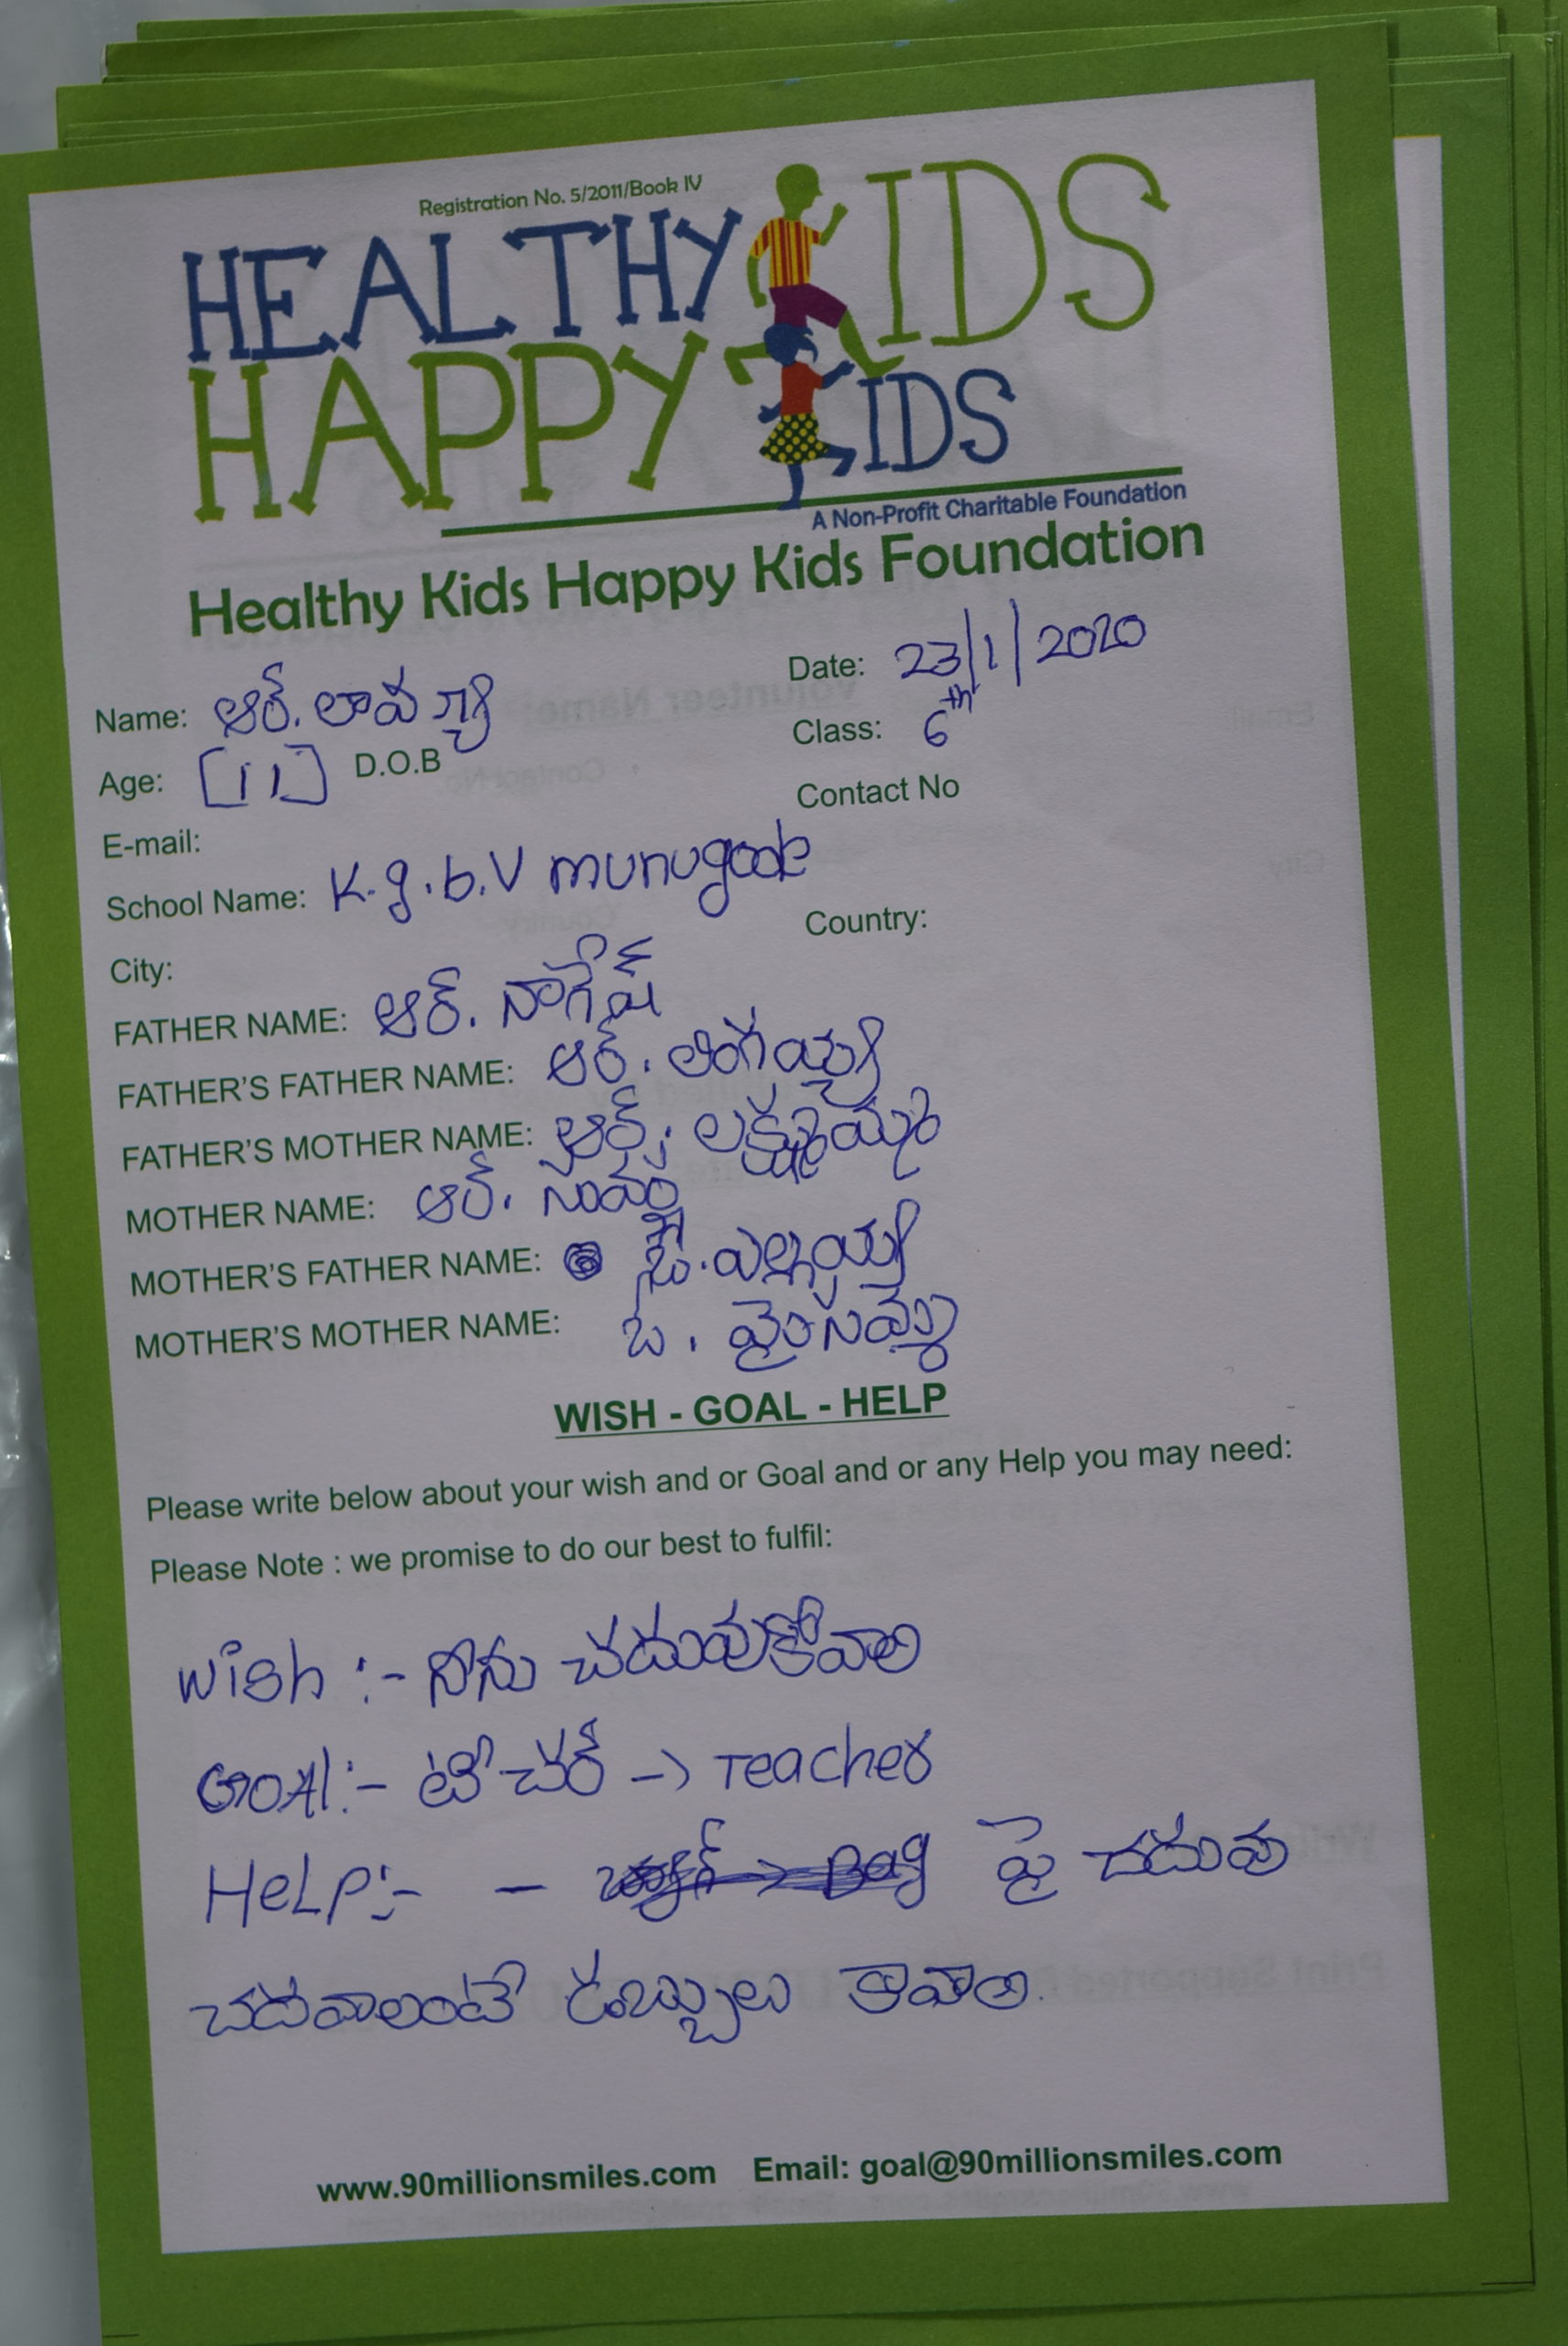 Registration No. 5/2011/Book IV
HEALTHY KIDS
HAPPY KIDS
A Non-Profit Charitable Foundation
Healthy Kids Happy Kids Foundation
Name: ఆర్. లావణ్య Date: 23/1/2020
Age: [11] D.O.B Class: 6th
E-mail: Contact No
School Name: K.g.b.V munugode
City: Country:
FATHER NAME: ఆర్. నాగేష్
FATHER'S FATHER NAME: ఆర్. లింగయ్య
FATHER'S MOTHER NAME: ఆర్. లక్ష్మమ్మ
MOTHER NAME: ఆర్. సువర్ణ
MOTHER'S FATHER NAME: ఓ. ఎల్లయ్య
MOTHER'S MOTHER NAME: ఓ. మైసమ్మ
WISH - GOAL - HELP
Please write below about your wish and or Goal and or any Help you may need:
Please Note : we promise to do our best to fulfil:
Wish :- నేను చదువుకోవాలి
GOAl:- టీచర్ -> Teacher
HeLP:- - పై చదువు
చదవాలంటే డబ్బులు కావాలి.
www.90millionsmiles.com Email: goal@90millionsmiles.com